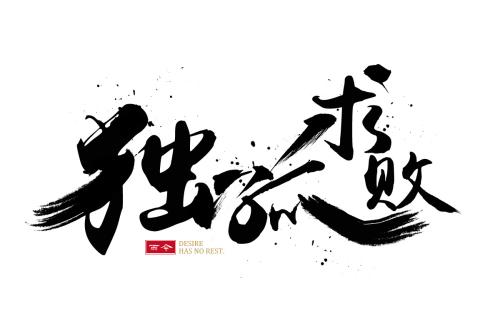 独孤求败
西令
DESIRE
HAS NO REST.